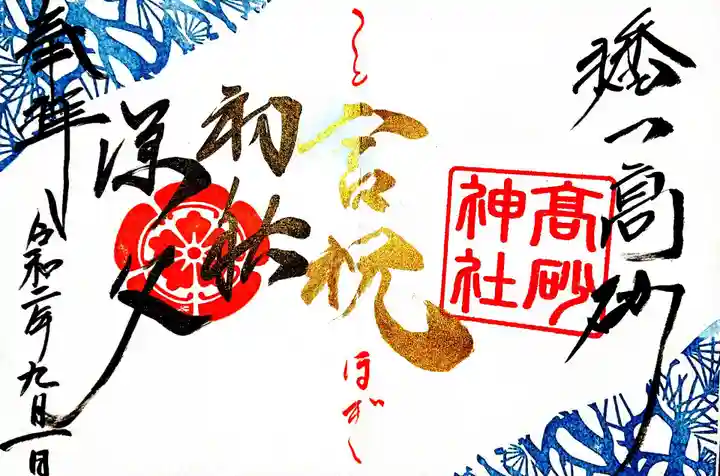 播
高砂
髙砂
神社
こと
言祝
ほぎ
初秋
奉拝
令和二年九月一日